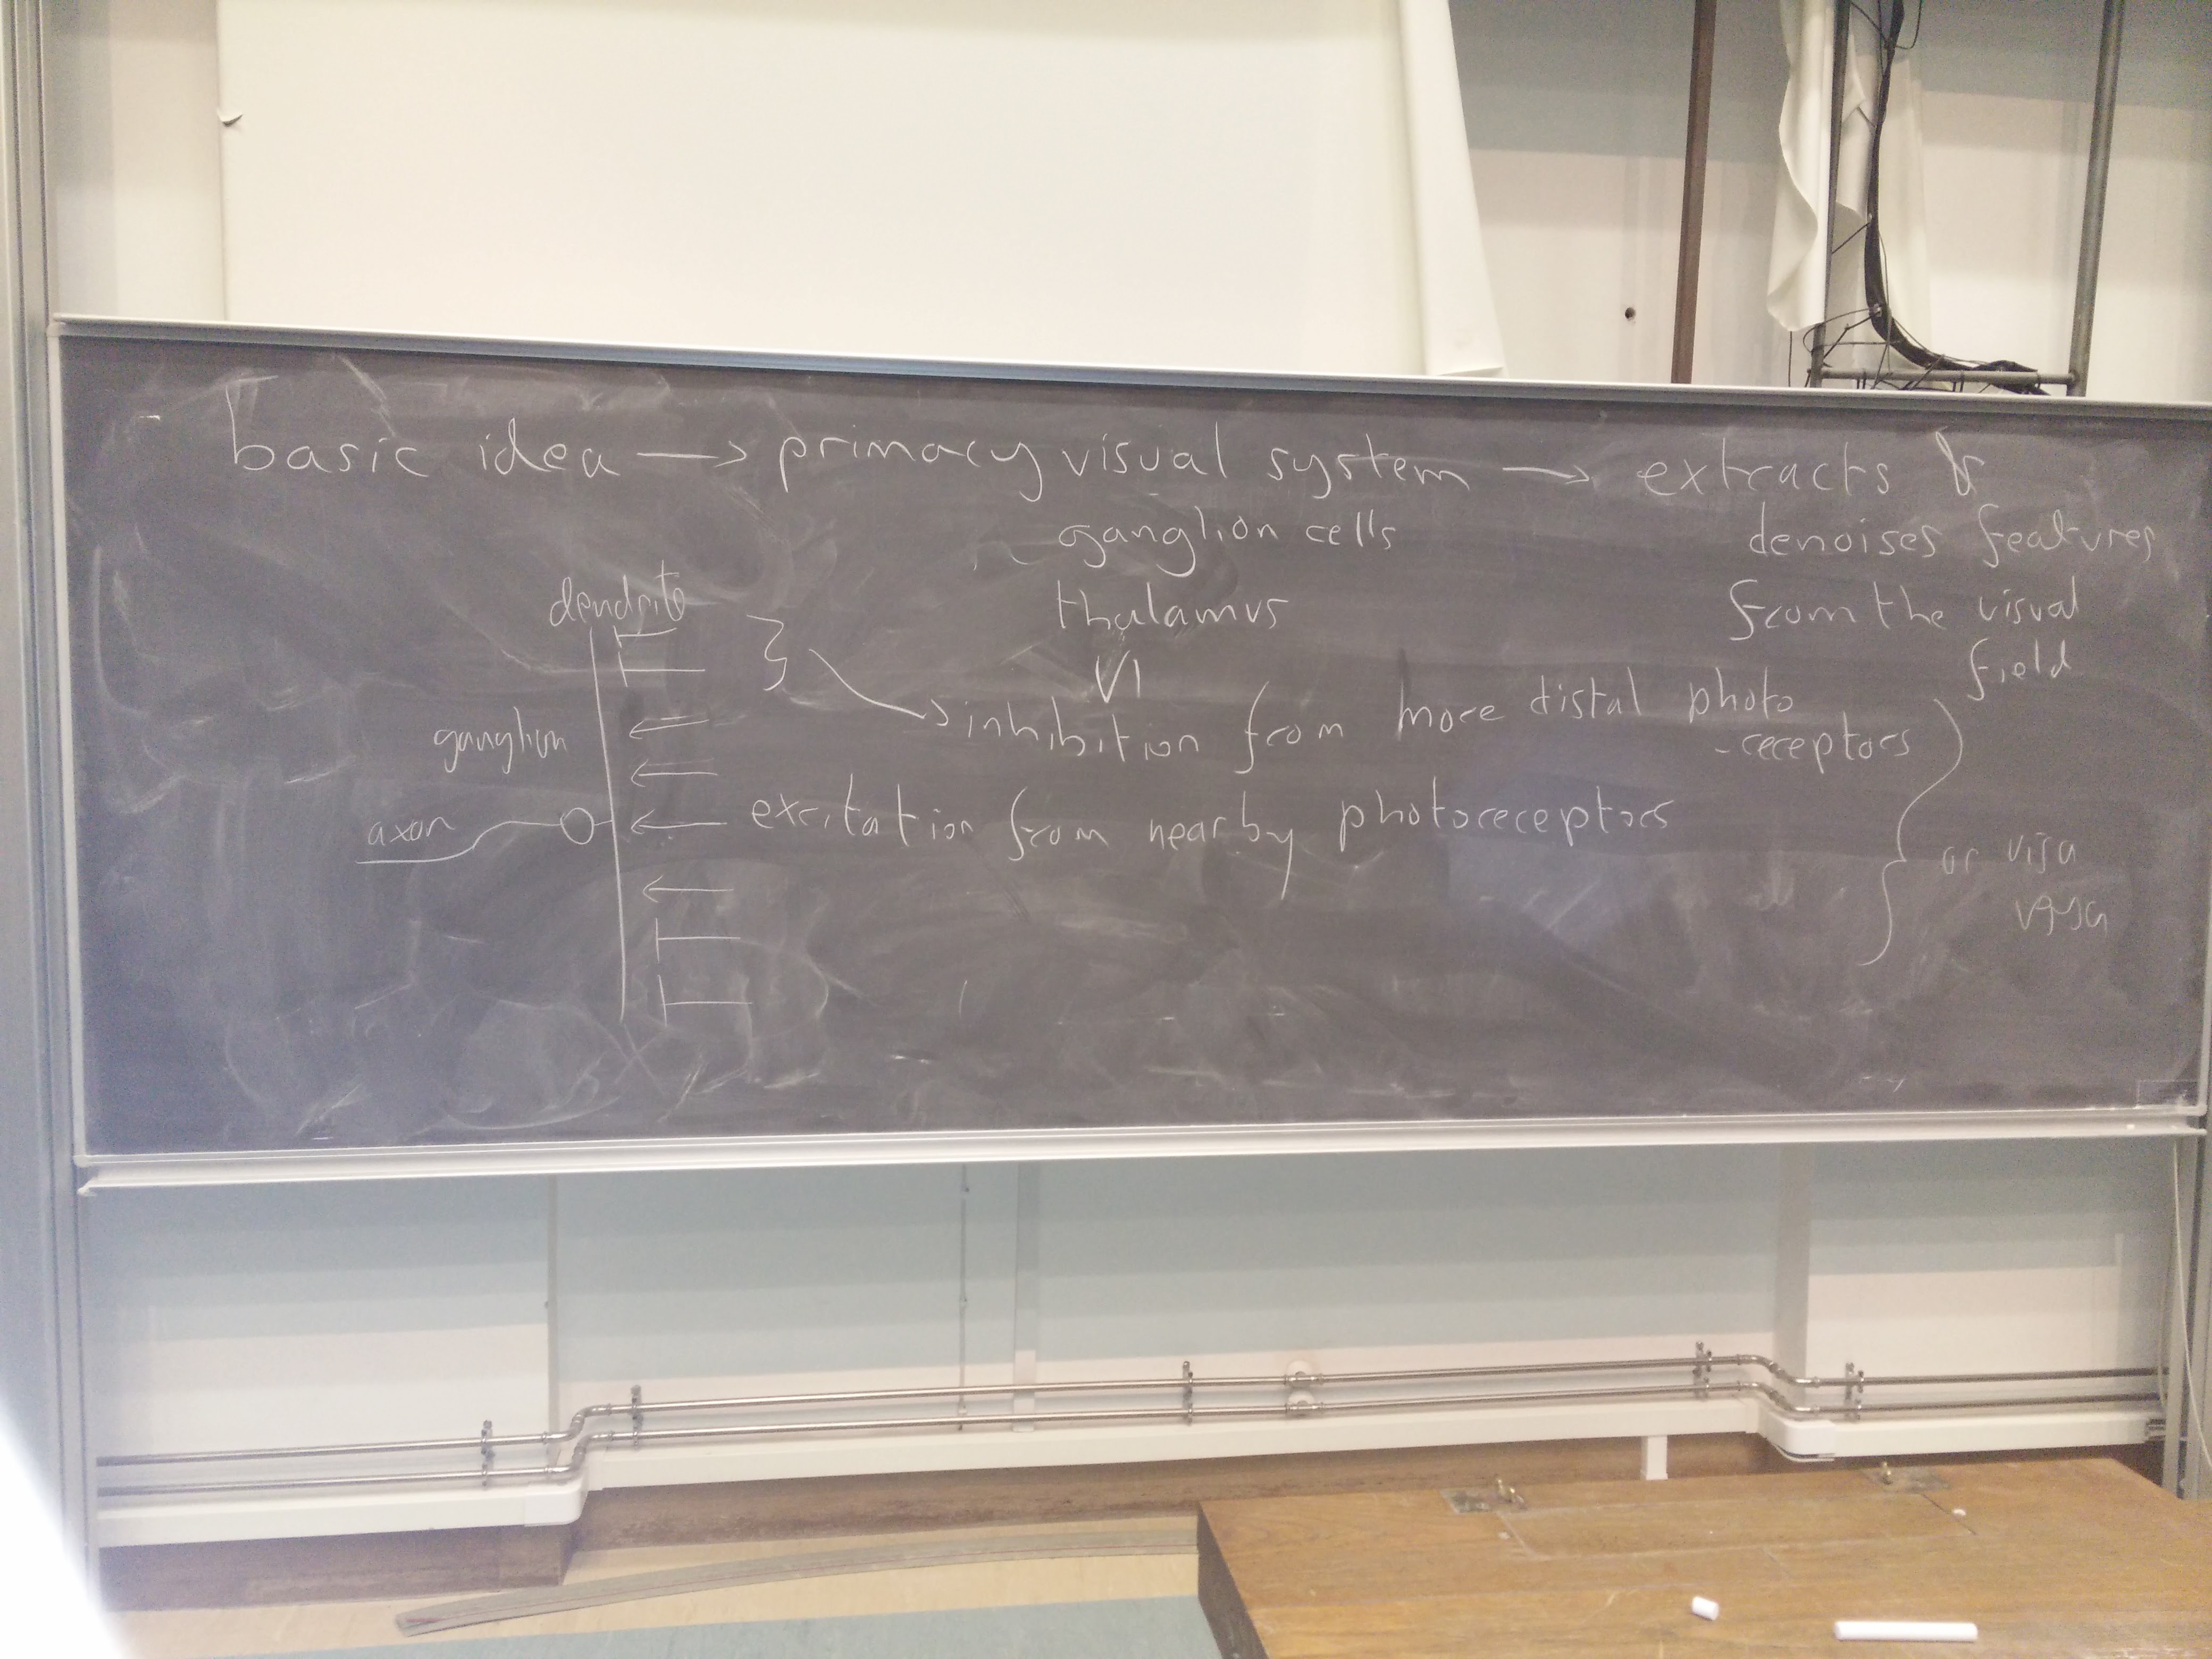 basic idea → primary visual system → extracts &
denoises features
from the visual
field
ganglion cells
thalamus
V1
dendrite
ganglion
axon
→ inhibition from more distal photo
-receptors
← excitation from nearby photoreceptors
or visa
versa